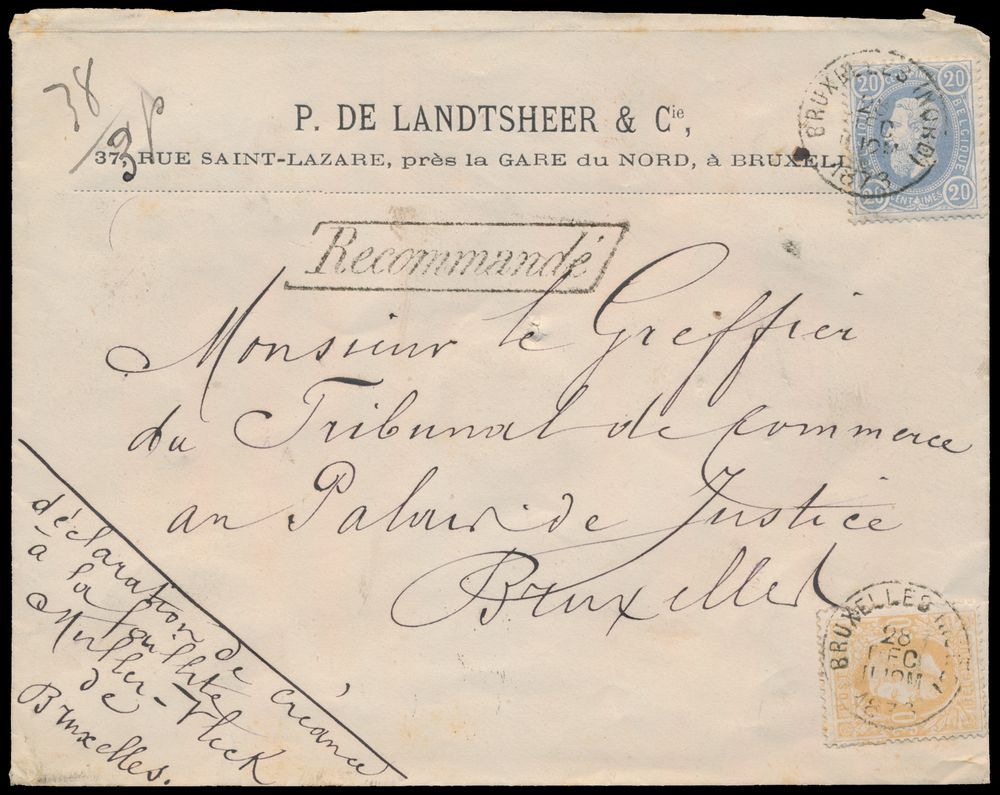 38
3p
P. DE LANDTSHEER & Cie,
37, RUE SAINT-LAZARE, près la GARE du NORD, à BRUXELL
BRUXELLES (NORD)
1873
20 20
BELGIQUE
20 CENTIMES 20
Recommandé
Monsieur le Greffier
du Tribunal de Commerce
au Palais de Justice
Bruxelles
déclaration de créance
à la faillite
Muller-
de
Bruxelles.
BRUXELLES
28
DEC